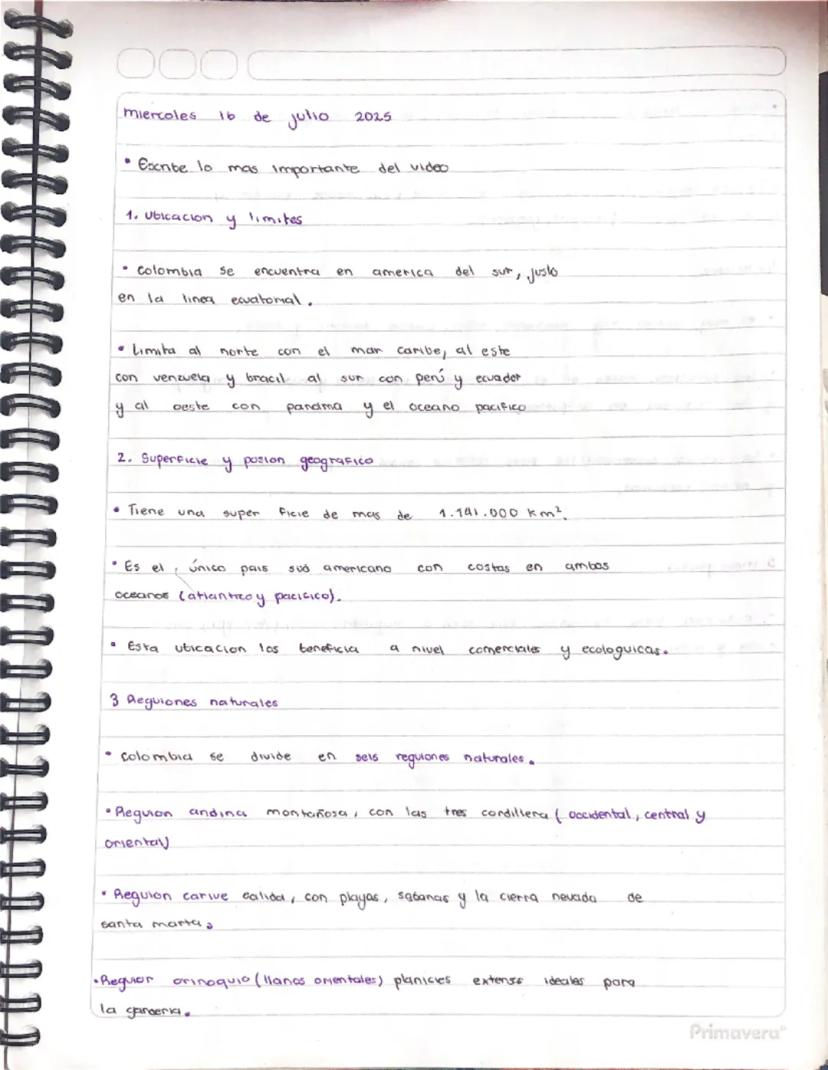 miercoles 16 de julio 2025
• Escribe lo mas importante del video
1. Ubicacion y limites
• Colombia se encuentra en america del sur, justo
en la linea ecuatorial.
• Limita al norte con el mar caribe, al este
con venzuela y bracil al sur con perú y ecuador
y al oeste con panama y el oceano pacifico
2. Superficie y posion geografico
• Tiene una super ficie de mas de 1.141.000 km².
• Es el, único pais sud americano con costas en ambos
oceanos (atlantico y pacicico).
• Esta ubicacion los beneficia a nivel comerciales y ecologuicas.
3 Reguiones naturales
• Colombia se divide en seis reguiones naturales.
• Reguion andina montañosa, con las tres cordillera (occidental, central y
oriental)
• Reguion carive calida, con playas, sabanas y la cierra nevada de
santa marta,
• Reguior orinoquio (llanos orientales) planicies extense ideales para
la ganderia.
Primavera